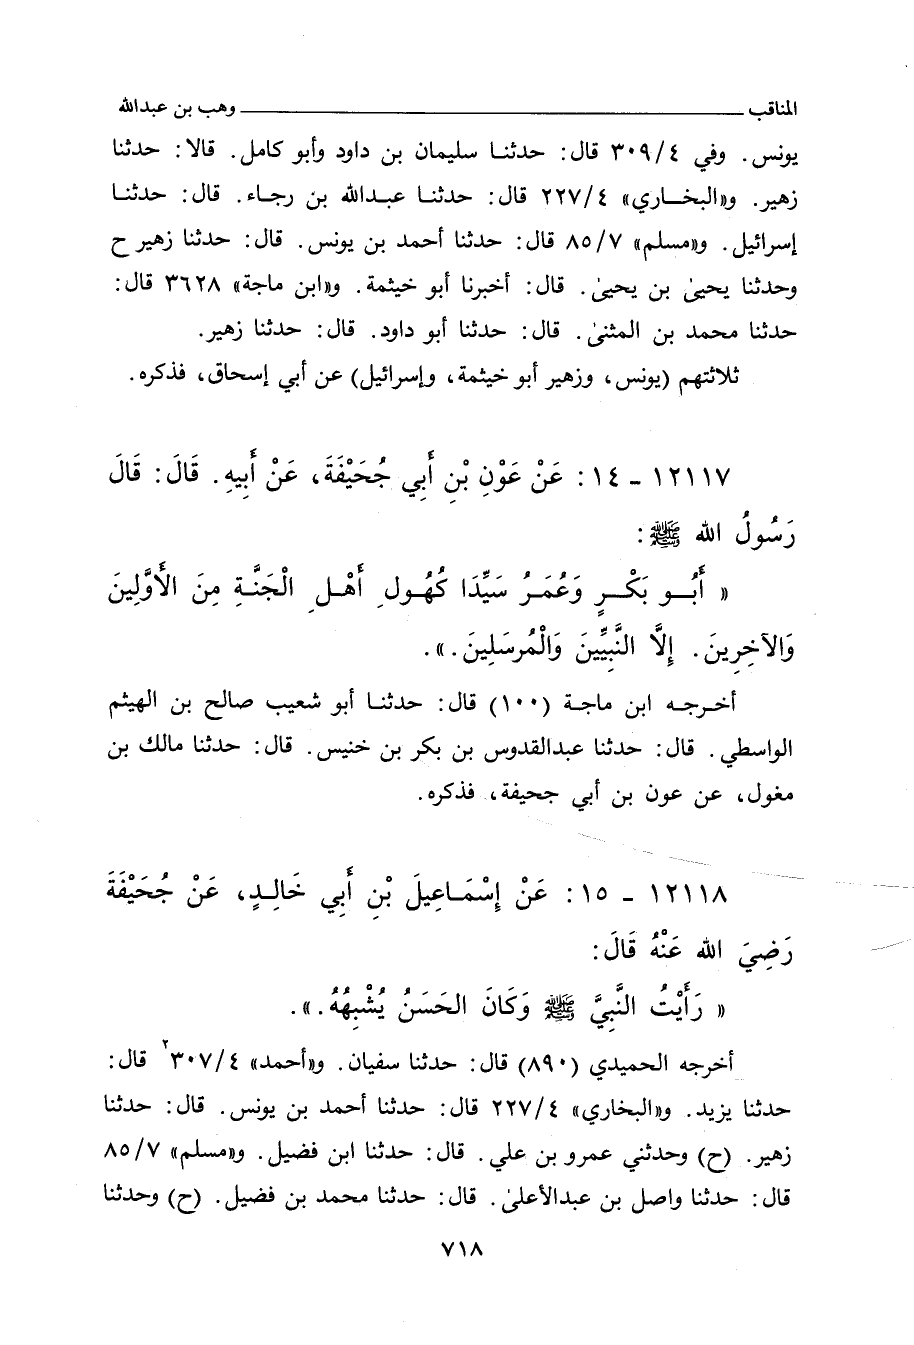 المناقب ــــــــــ وهب بن عبدالله
يونس. وفي ٣٠٩/٤ قال: حدثنا سليمان بن داود وأبو كامل. قالا: حدثنا
زهير. و«البخاري» ٢٢٧/٤ قال: حدثنا عبدالله بن رجاء. قال: حدثنا
إسرائيل. و«مسلم» ٨٥/٧ قال: حدثنا أحمد بن يونس. قال: حدثنا زهير ح
وحدثنا يحيىٰ بن يحيىٰ. قال: أخبرنا أبو خيثمة. و«ابن ماجة» ٣٦٢٨ قال:
حدثنا محمد بن المثنىٰ. قال: حدثنا أبو داود. قال: حدثنا زهير.
ثلاثتهم (يونس، وزهير أبو خيثمة، وإسرائيل) عن أبي إسحاق، فذكره.
١٢١١٧ - ١٤: عَنْ عَوْنِ بْنِ أَبِي جُحَيْفَةَ، عَنْ أَبِيهِ. قَالَ: قَالَ
رَسُولُ الله ﷺ:
« أَبُو بَكْرٍ وَعُمَرُ سَيِّدَا كُهُولِ أَهْلِ الْجَنَّةِ مِنَ الأَوَّلِينَ
وَالآخِرِينَ. إِلَّا النَّبِيِّينَ وَالْمُرسَلِينَ.».
أخرجه ابن ماجة (١٠٠) قال: حدثنا أبو شعيب صالح بن الهيثم
الواسطي. قال: حدثنا عبدالقدوس بن بكر بن خنيس. قال: حدثنا مالك بن
مغول، عن عون بن أبي جحيفة، فذكره.
١٢١١٨ - ١٥: عَنْ إِسْمَاعِيلَ بْنِ أَبِي خَالِدٍ، عَنْ جُحَيْفَةَ
رَضِيَ الله عَنْهُ قَالَ:
« رَأَيْتُ النَّبِيَّ ﷺ وَكَانَ الحَسَنُ يُشْبِهُهُ.».
أخرجه الحميدي (٨٩٠) قال: حدثنا سفيان. و«أحمد» ٣٠٧/٤ ٢ قال:
حدثنا يزيد. و«البخاري» ٢٢٧/٤ قال: حدثنا أحمد بن يونس. قال: حدثنا
زهير. (ح) وحدثني عمرو بن علي. قال: حدثنا ابن فضيل. و«مسلم» ٨٥/٧
قال: حدثنا واصل بن عبدالأعلىٰ. قال: حدثنا محمد بن فضيل. (ح) وحدثنا
٧١٨